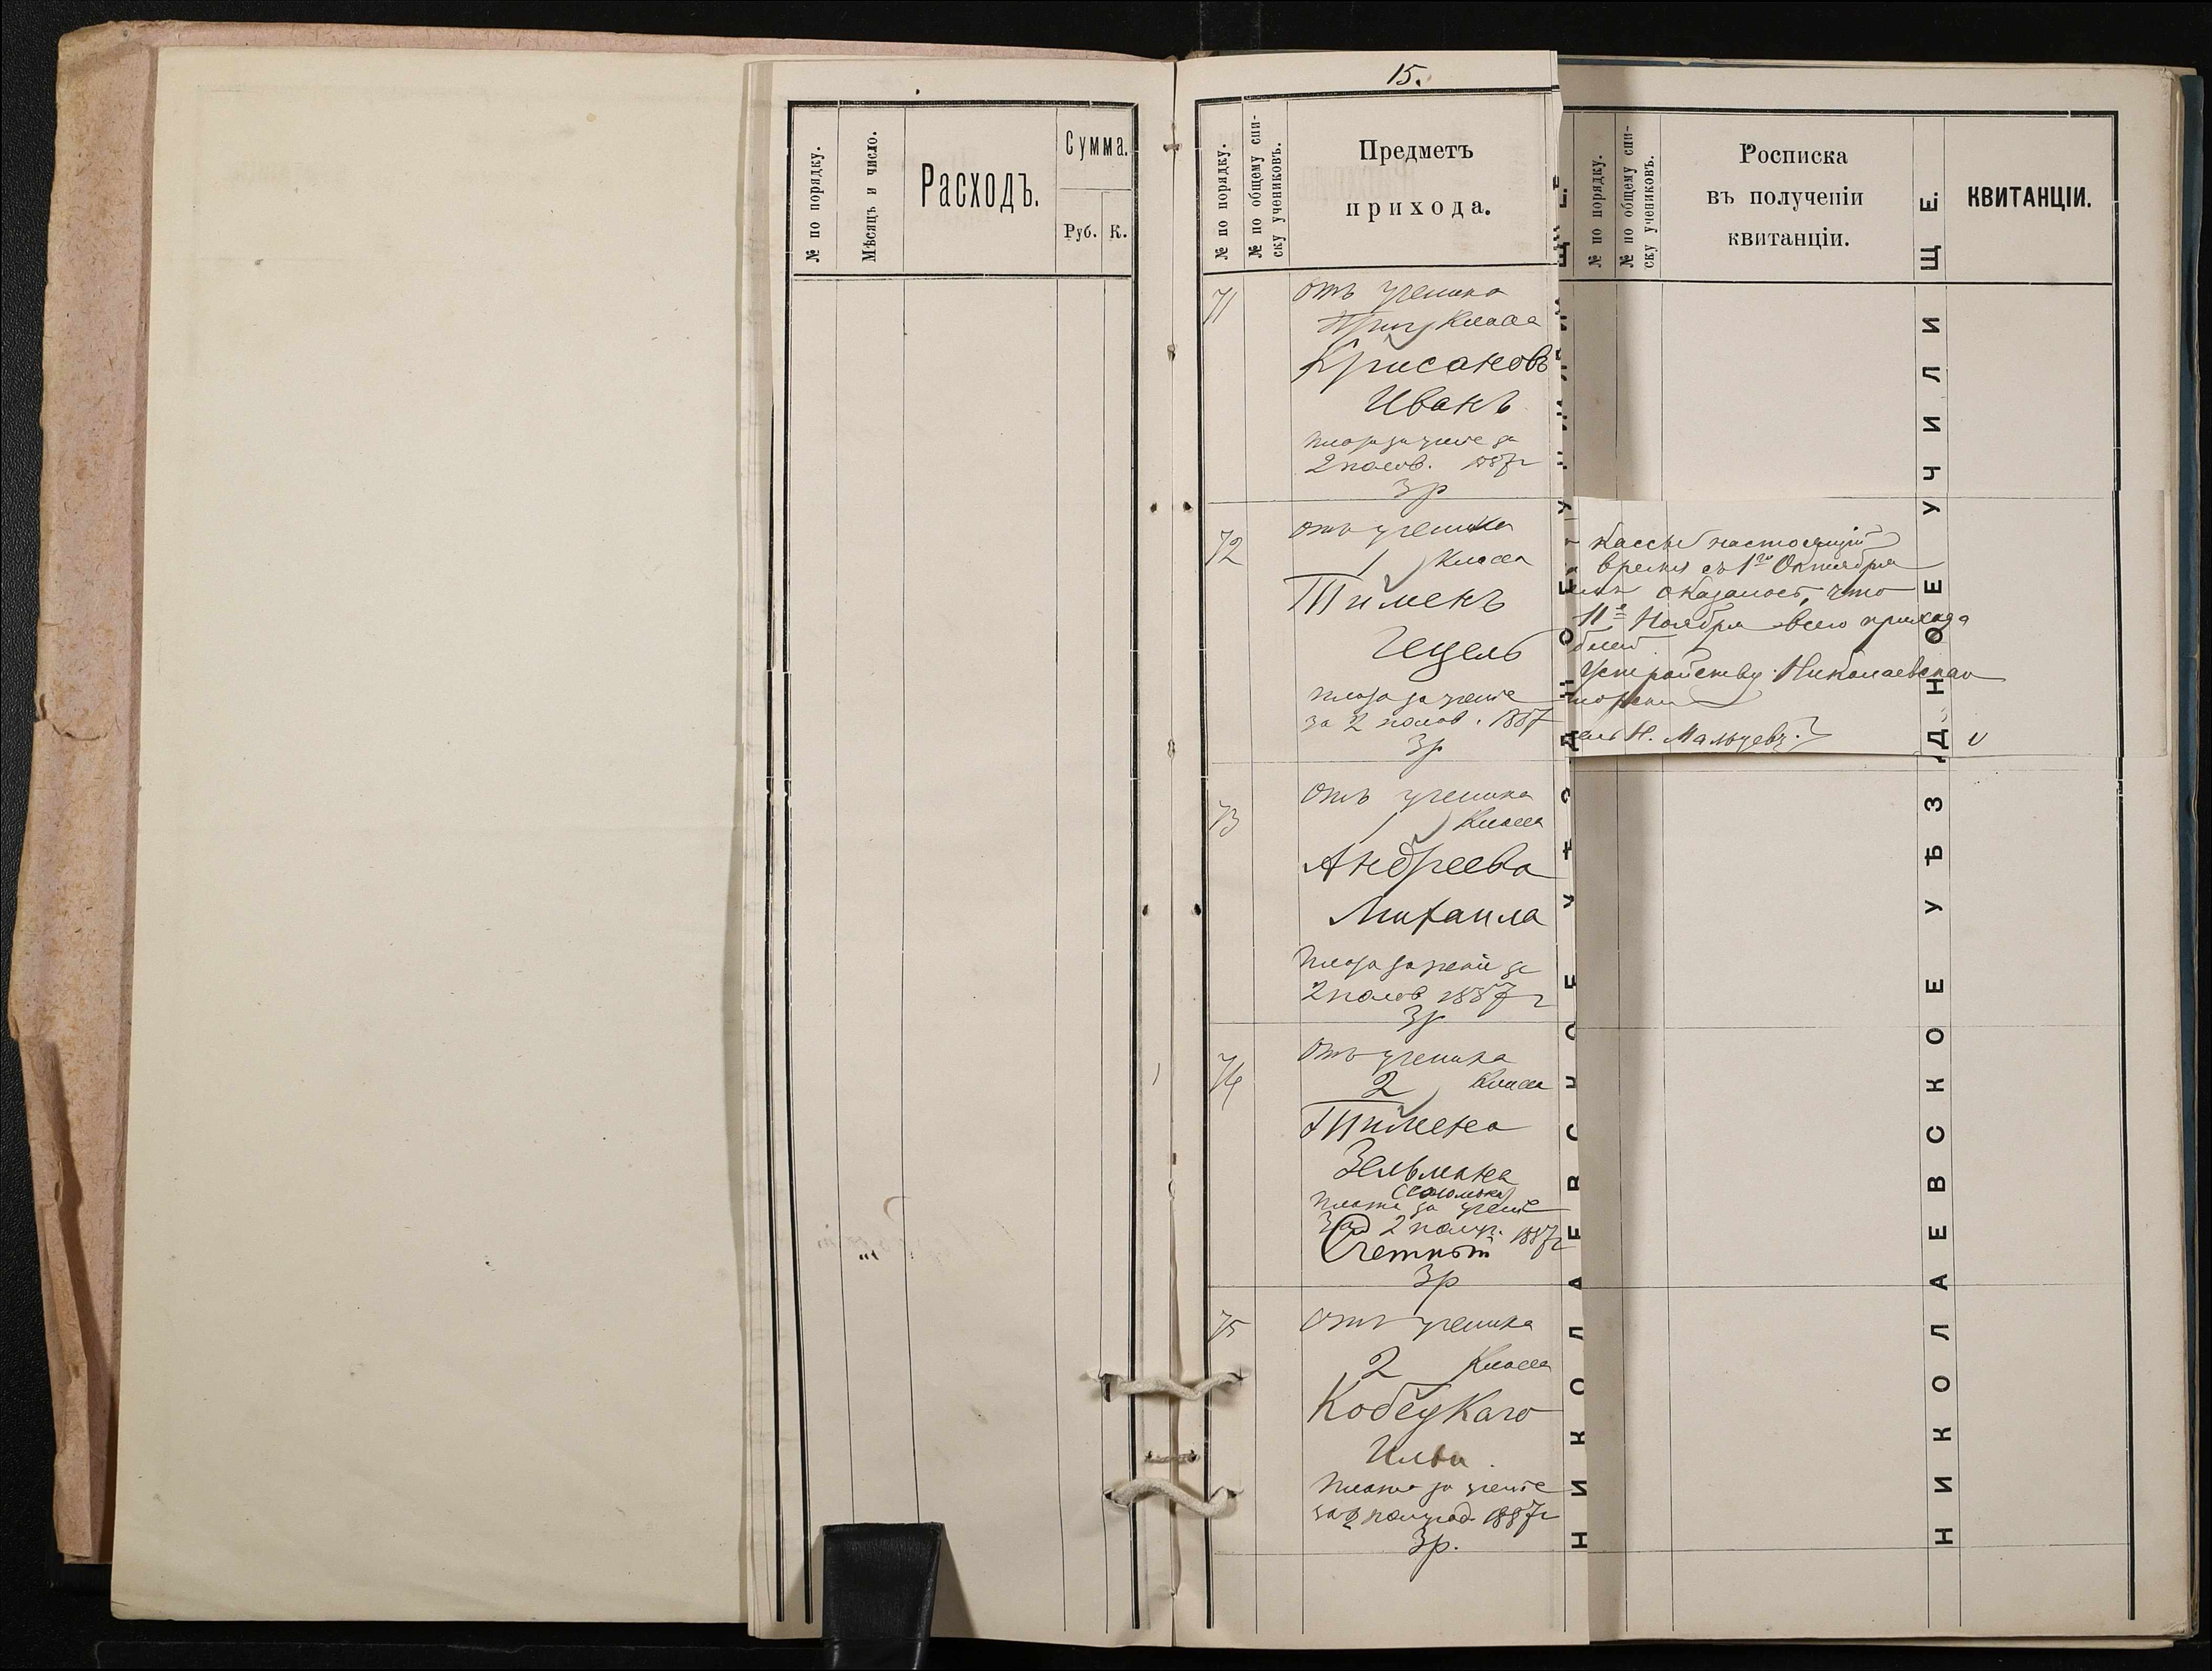 15.
№ по порядку.
Мѣсяцъ и число.
Расходъ.
Сумма.
Руб. К.
№ по порядку.
№ по общему спи-
ску учениковъ.
Предметъ
прихода.
71
Отъ ученика
класса
Крисановъ
Иванъ
плата за учение за
2 полов. 1887 г
3 р
72
Отъ ученика
1 класса
Тименъ
Гецель
плата за учение
за 2 полов. 1887
3 р
73
Отъ ученика
1 класса
Андреева
Михаила
плата за учение за
2 полов 1887 г
3 р
74
Отъ ученика
2 класса
Тимена
Зельмана
плата за учение
за 2 полуг. 1887 г
3 р
75
Отъ ученика
2 класса
Кобецкаго
Ильи
плата за учение
за 2 полугод. 1887 г
3 р.
НИКОЛАЕВСКОЕ УѢЗДНОЕ УЧИЛИЩЕ
№ по порядку.
№ по общему спи-
ску учениковъ.
Росписка
въ полученіи
квитанціи.
кассы настоящій
время съ 1го Октября
оказалось, что
11е Ноября всего прихода
блей
Устройству Николаевскаго
Н. Мальцевъ.
НИКОЛАЕВСКОЕ УѢЗДНОЕ УЧИЛИЩЕ.
КВИТАНЦІИ.